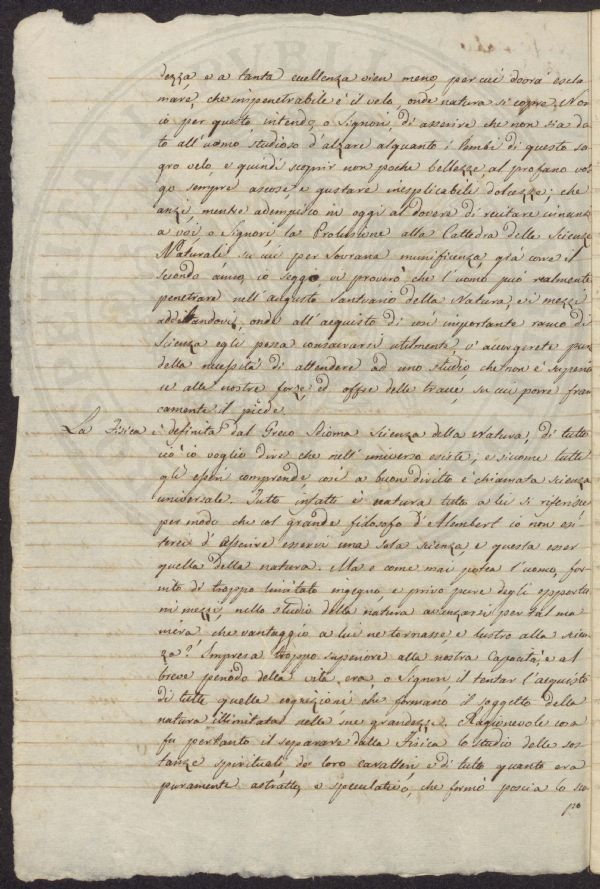 dezza e a tanta eccellenza vien meno, per cui dovrà escla
mare che impenetrabile è il velo, onde natura si copre. Non
io per questo intendo, o Signori, di asserire che non sia da
to all'uomo studioso d'alzare alquanto i lembi di questo sa
gro velo, e quindi scoprir non poche bellezze, al profano vol
go sempre ascose, e gustare inesplicabili dolcezze: che
anzi, mentre adempisco in oggi al dovere di recitare innanzi
a voi, o Signori la Prolusione alla Cattedra delle Scienze
Naturali su cui per Sovrana munificenza, già corre il
secondo anno, io seggo, vi proverò, che l'uomo può realmente
penetrare nell'augusto santuario della Natura, e i mezzi
additandovi, onde all'acquisto di così importante ramo di
Scienza egli possa consacrarsi utilmente, v'accorgerete pur
della necessità di attendere ad uno studio che non è superio
re alle nostre forze, ed offre delle tracce, su cui porre fran
camente il piede.
La Fisica è definita dal Greco Idioma Scienza della Natura, di tutto
ciò io voglio dire che nell'universo esiste, e siccome tutti
gli esseri comprende così a buon diritto è chiamata scienza
universale. Tutto infatti è natura tutto a lei si riferisce
per modo che col grande filosofo d'Alembert io non esi
terei d'asserire esservi una sola scienza e questa esser
quella della natura. Ma e come mai potea l'uomo, for
nito di troppo limitato ingegno, e privo pure degli opportu
ni mezzi, nello studio della natura avanzarsi per tal ma
niera che vantaggio a lui ne tornasse, e lustro alla scien
za? Impresa troppo superiore alla nostra Capacità, e al
breve periodo della vita era o Signori il tentar l'acquisto
di tutte quelle cognizioni che formano il soggetto della
natura illimitata nelle sue grandezze. Ragionevole cosa
fu pertanto il separare dalla Fisica lo studio delle sos
tanze spirituali de loro caratteri e di tutto quanto era
puramente astratto, o speculativo, che formò poscia lo sco
po